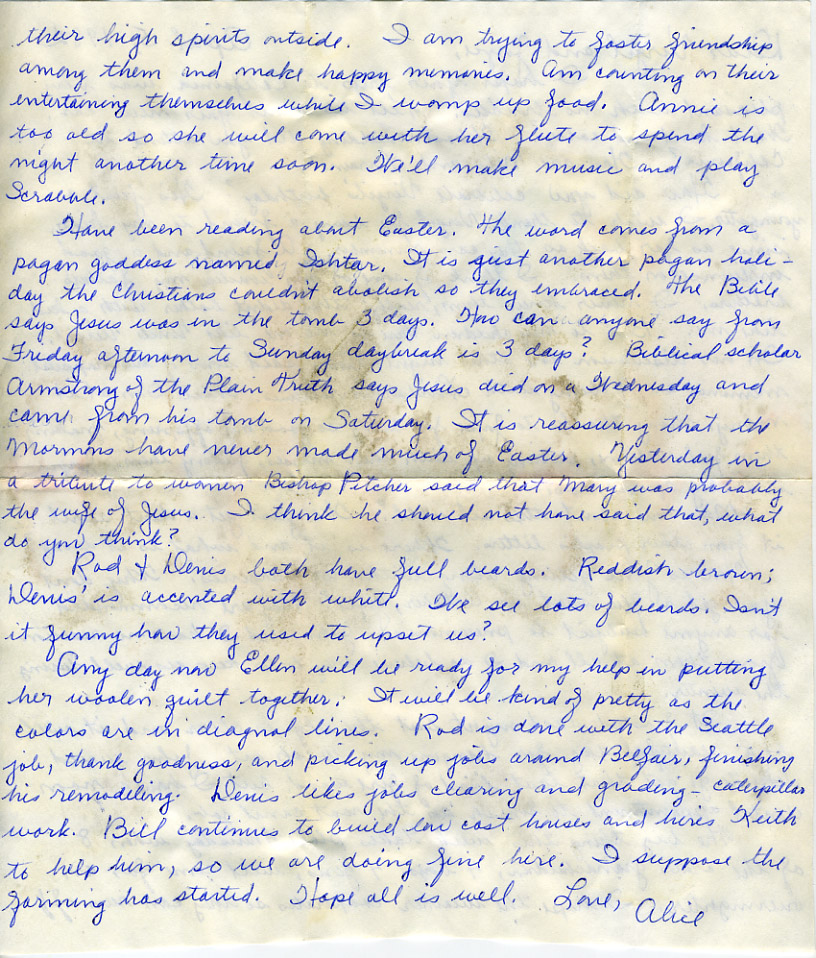 their high spirits outside. I am trying to foster friendship
among them and make happy memories. Am counting on their
entertaining themselves while I womp up food. Annie is
too old so she will come with her flute to spend the
night another time soon. We'll make music and play
Scrabble.
Have been reading about Easter. The word comes from a
pagan goddess named Ishtar. It is just another pagan holi-
day the Christians couldn't abolish so they embraced. The Bible
says Jesus was in the tomb 3 days. How can anyone say from
Friday afternoon to Sunday daybreak is 3 days? Biblical scholar
Armstrong of the Plain Truth says Jesus died on a Wednesday and
came from his tomb on Saturday. It is reassuring that the
Mormons have never made much of Easter. Yesterday in
a tribute to women Bishop Pitcher said that Mary was probably
the wife of Jesus. I think he should not have said that, what
do you think?
Rod & Denis both have full beards. Reddish brown;
Denis' is accented with white. We see lots of beards. Isn't
it funny how they used to upset us?
Any day now Ellen will be ready for my help in putting
her woolen quilt together. It will be kind of pretty as the
colors are in diagnal lines. Rod is done with the Seattle
job, thank goodness, and picking up jobs around Belfair, finishing
his remodeling. Denis likes jobs clearing and grading - caterpillar
work. Bill continues to build low cost houses and hires Keith
to help him, so we are doing fine here. I suppose the
farming has started. Hope all is well. Love, Alice